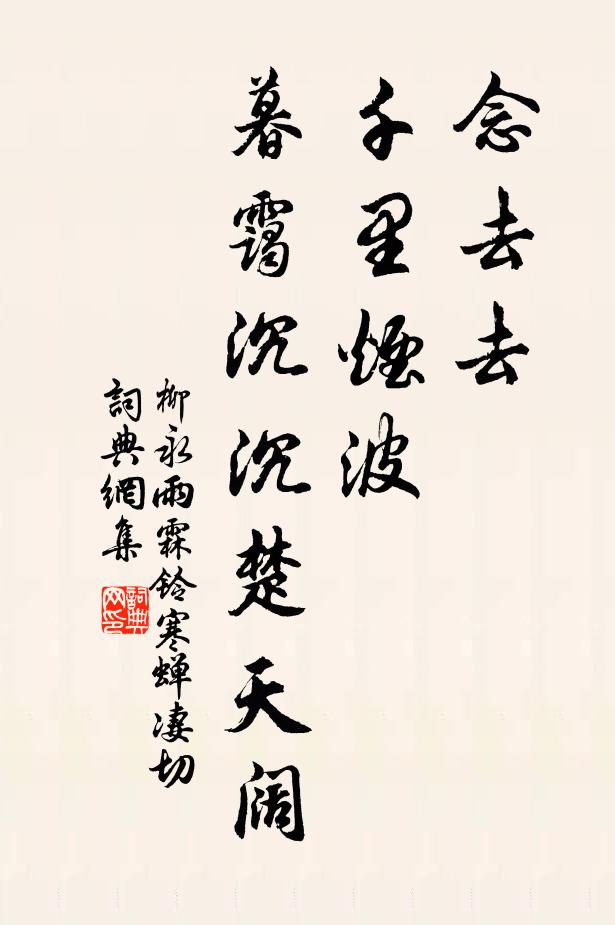 念去去
千里煙波
暮靄沉沉楚天阔
柳永雨霖铃寒蝉凄切
詞典網集
詞典网印